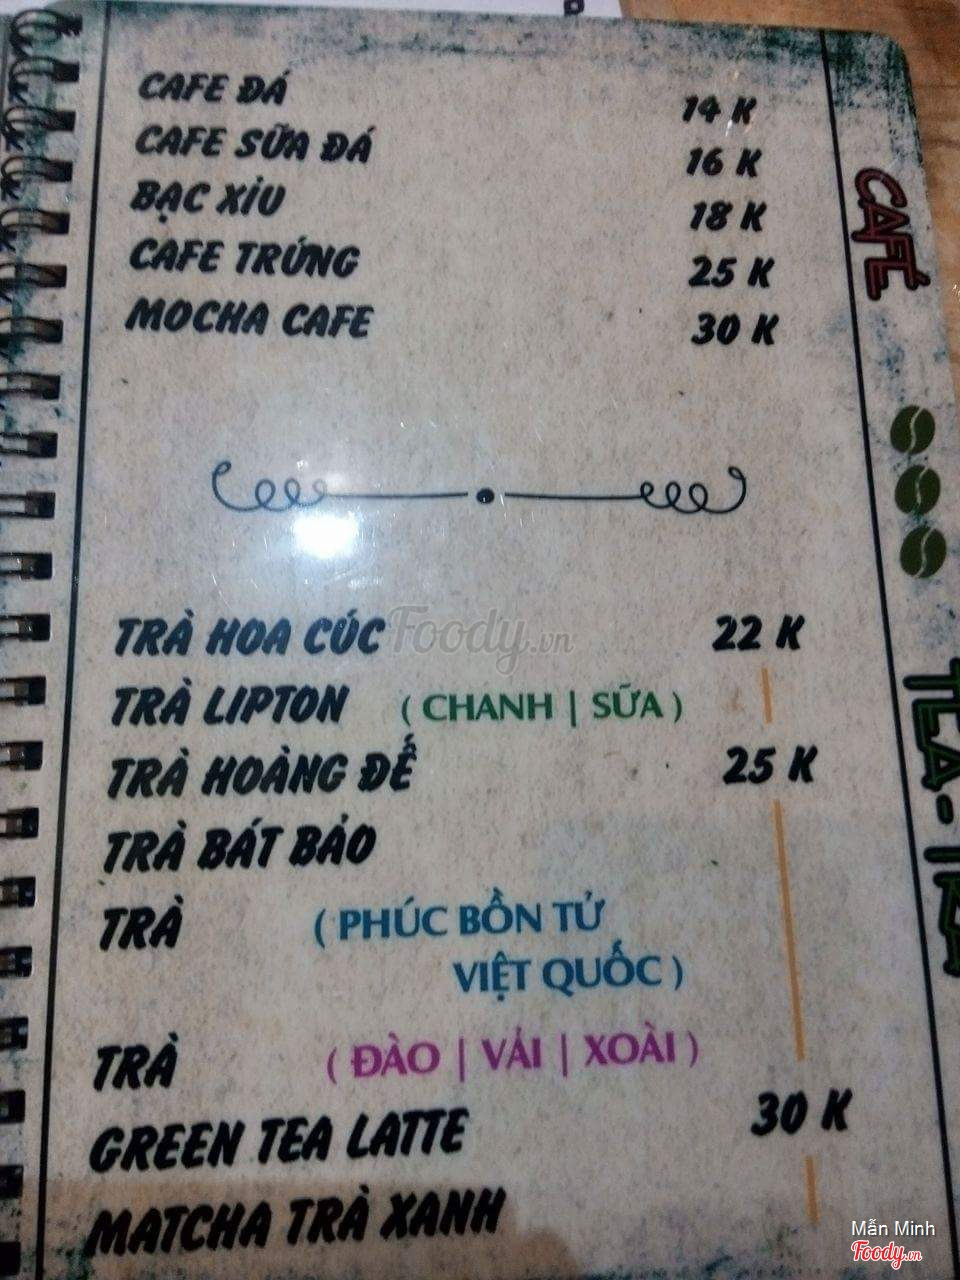 CAFE ĐÁ 14 K
CAFE SỮA ĐÁ 16 K
BẠC XỈU 18 K
CAFE TRỨNG 25 K
MOCHA CAFE 30 K
CAFÉ
TRÀ HOA CÚC 22 K
Foody.vn
TRÀ LIPTON ( CHANH | SỮA )
TRÀ HOÀNG ĐẾ 25 K
TRÀ BÁT BẢO
TRÀ ( PHÚC BỒN TỬ
VIỆT QUỐC )
TEA-TRÀ
TRÀ ( ĐÀO | VẢI | XOÀI )
GREEN TEA LATTE 30 K
MATCHA TRÀ XANH
Mẫn Minh
Foody.vn